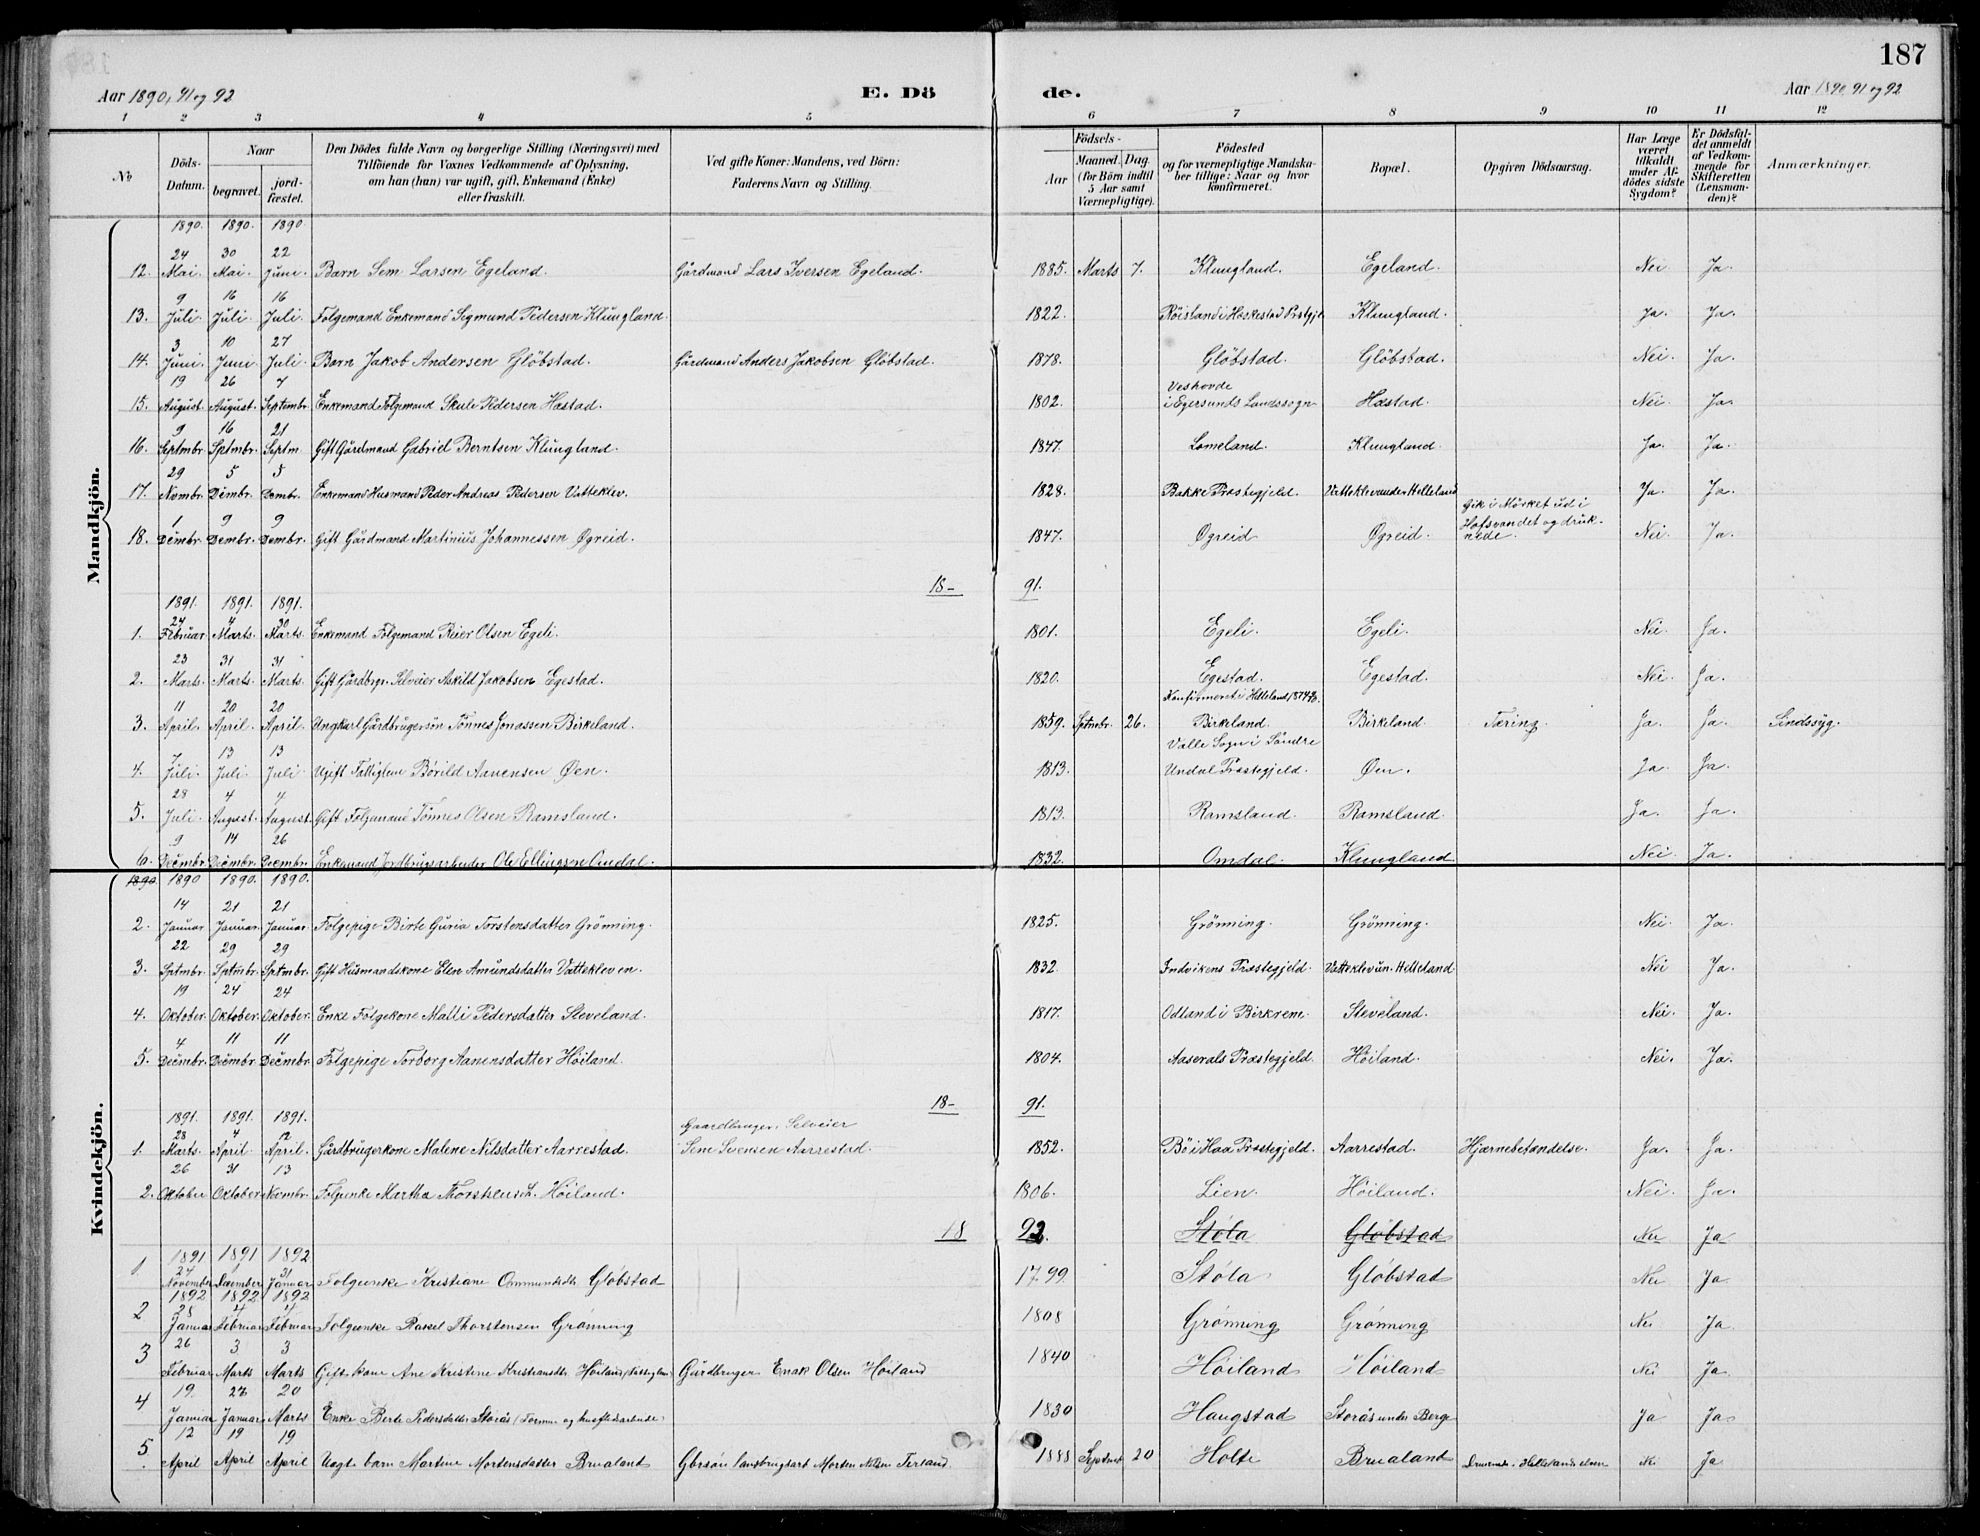 187
Aar 1890, 91 og 92 E. Dö de. Aar 1890, 91 og 92
1 2 3 4 5 6 7 8 9 10 11 12
No
Döds-Datum.
Naar
begravet.
jord-fæstet.
Den Dödes fulde Navn og borgerlige Stilling (Næringsvei) med
Tilföiende for Voxnes Vedkommende af Oplysning,
om han (hun) var ugift, gift, Enkemand (Enke)
eller fraskilt.
Ved gifte Koner: Mandens, ved Börn:
Faderens Navn og Stilling.
Födsels-
Aar
Maaned. Dag.
(for Börn indtil
5 Aar samt
Værnepligtige).
Födested
og for værnepligtige Mandska-
ber tillige: Naar og hvor
konfirmeret.
Bopæl.
Opgiven Dödsaarsag.
Har Læge
været
tilkaldt
under Af-
dödes sidste
Sygdom?
Er Dödsfal-
det anmeldt
af Vedkom-
mende for
Skifteretten
(Lensman-
den)?
Anmærkninger.
Mandkjön.
1890. 1890. 1890.
24 30 22
12. Mai. Mai. Juni. Barn Sem Larsen Egeland. Gårdmand Lars Iversen Egeland. 1885. Marts 7. Klungland. Egeland. Nei Ja.
9 16 16
13. Juli. Juli. Juli. Folgemand Enkemand Sigmund Pedersen Klungland. 1822. Röisland i Heskestad Prstgje Klungland. Ja. Ja.
3 10 27
14. Juni. Juni. Juli. Barn Jakob Andersen Glöbstad. Gårdmand Anders Jakobsen Glöbstad. 1878. Glöbstad. Glöbstad. Nei. Ja.
19 26 7
15. August. August. Septembr. Enkemand Folgemand Skule Pedersen Hæstad. 1802. Veshovde i Egersunds Landssogn Hæstad. Nei. Ja.
9 16 21
16. Septmbr. Sptmbr. Septm. Gift Gårdmand Gabriel Berntsen Klungland. 1847. Lomeland. Klungland. Ja. Ja.
29 5 5
17. Novmbr. Dëmbr. Dembr. Enkemand Husmand Peder Andreas Pedersen Vatteklev. 1828. Bakke Præstegjeld. Vatteklev under Helleland Ja. Ja.
1 9 9
18. Dëmbr. Dembr. Dembr. Gift Gårdmand Martinius Johannessen Øgreid. 1847. Øgreid Øgreid. Gik i Mörket ud i Hofsvandet og druk-nede. Nei. Ja.
18- 91.
1891. 1891. 1891.
24 4 30
1. Februar. Marts. Marts. Enkemand Folgemand Reier Olsen Egeli. 1801. Egeli. Egeli. Nei. Ja.
23 31 31
2. Marts. Marts. Marts. Gift Gårdbrgr. Selveier Askild Jakobsen Egestad. 1820. Egestad. Egestad. Nei. Ja.
11 20 20
3. April. April. April. Ungkarl Gårdbrugersön Tönnes Jonassen Birkeland. 1859. Sptmbr. 26. Konfirmeret i Helleland 1874 Birkeland. Birkeland. Tæring. Ja. Ja. Sindssyg.
7 13 13
4. Juli. Juli. Juli. Ugift Fattiglem Börild Aanensen Øen. 1813. Valle Sogn i Söndre Undal Præstegjeld. Øen. Ja. Ja.
28 4 4
5. Juli. August. August. Gift Folgemand Tönnes Olsen Ramsland. 1813. Ramsland. Ramsland. Ja. Ja.
9 14 26
6. Decëmbr. Decëmbr. Decembr. Enkemand Jordbrugsarbeider Ole Ellingsen Omdal. 1832. Omdal. Klungland Nei. Ja.
Kvindekjön.
1890 1890 1890. 1890.
14 21 21
2. Januar. Januar. Januar. Folgepige Birte Guria Torstensdatter Grönning. 1825. Grönning. Grönning. Nei. Ja.
22 29 29
3. Sptmbr. Sptmbr. Sptmbr. Gift Husmandskone Elen Amundsdatter Vatteklev en. 1832. Indvikens Præstegjeld. Vatteklev un. Helleland Nei Ja.
19 24 24
4. Oktober. Oktober. Oktober. Enke Folgekone Malli Pedersdatter Sleveland. 1817. Odland i Birkrem. Sleveland. Nei. Ja.
4 11 11
5. Decëmbr. Decëmbr. Decëmbr. Folgepige Torborg Aanensdatter Höiland. 1804. Aaserals Præstegjeld. Höiland. Nei. Ja.
18- 91.
1891. 1891. 1891.
28 4 12
1. Marts. April. April. Gårdbrugerkone Malene Nilsdatter Aarrestad. Gaardbruger, Selveier Sem Svensen Aarrestad. 1852. Bö i Haa Præstegjeld. Aarrestad. Hjærnebetændelse. Ja. Ja.
26 31 13
2. Oktober Oktober Novmbr. Folgenke Martha Thorstensd. Höiland. 1806. Lien. Höiland. Nei. Ja.
18 92. Støla Gløbstad Nei Ja
1891 1891 1892
1 24 1 31
November December Januar Folgeenke Kristiane Ommundsdtr Gløbstad 1799 Støla Gløbstad Nei Ja
1892 1892 1892
2 28 4 4
Januar Februar Februar Folgeenke Rakel Thorstensen Grønning 1808 Grønning Grønning Nei Ja
3 26 3 3
Februar Marts Marts Gift kone Ane Kristine Kristiansdtr Høiland Gårdbruger Enok Olsen Høiland 1840 Høiland Høiland Nei Ja
4 19. 27 20
Januar Januar Marts Enke Berte Pedersdatter Storås 1830 Haugstad Storås under Berge Ja Ja
5. 12 19 19
April April April Uægte barn Martine Mortensdatter Brualand Morten Nilsen Terland. 1888 Septmb 20 Holte Brualand Nei Ja